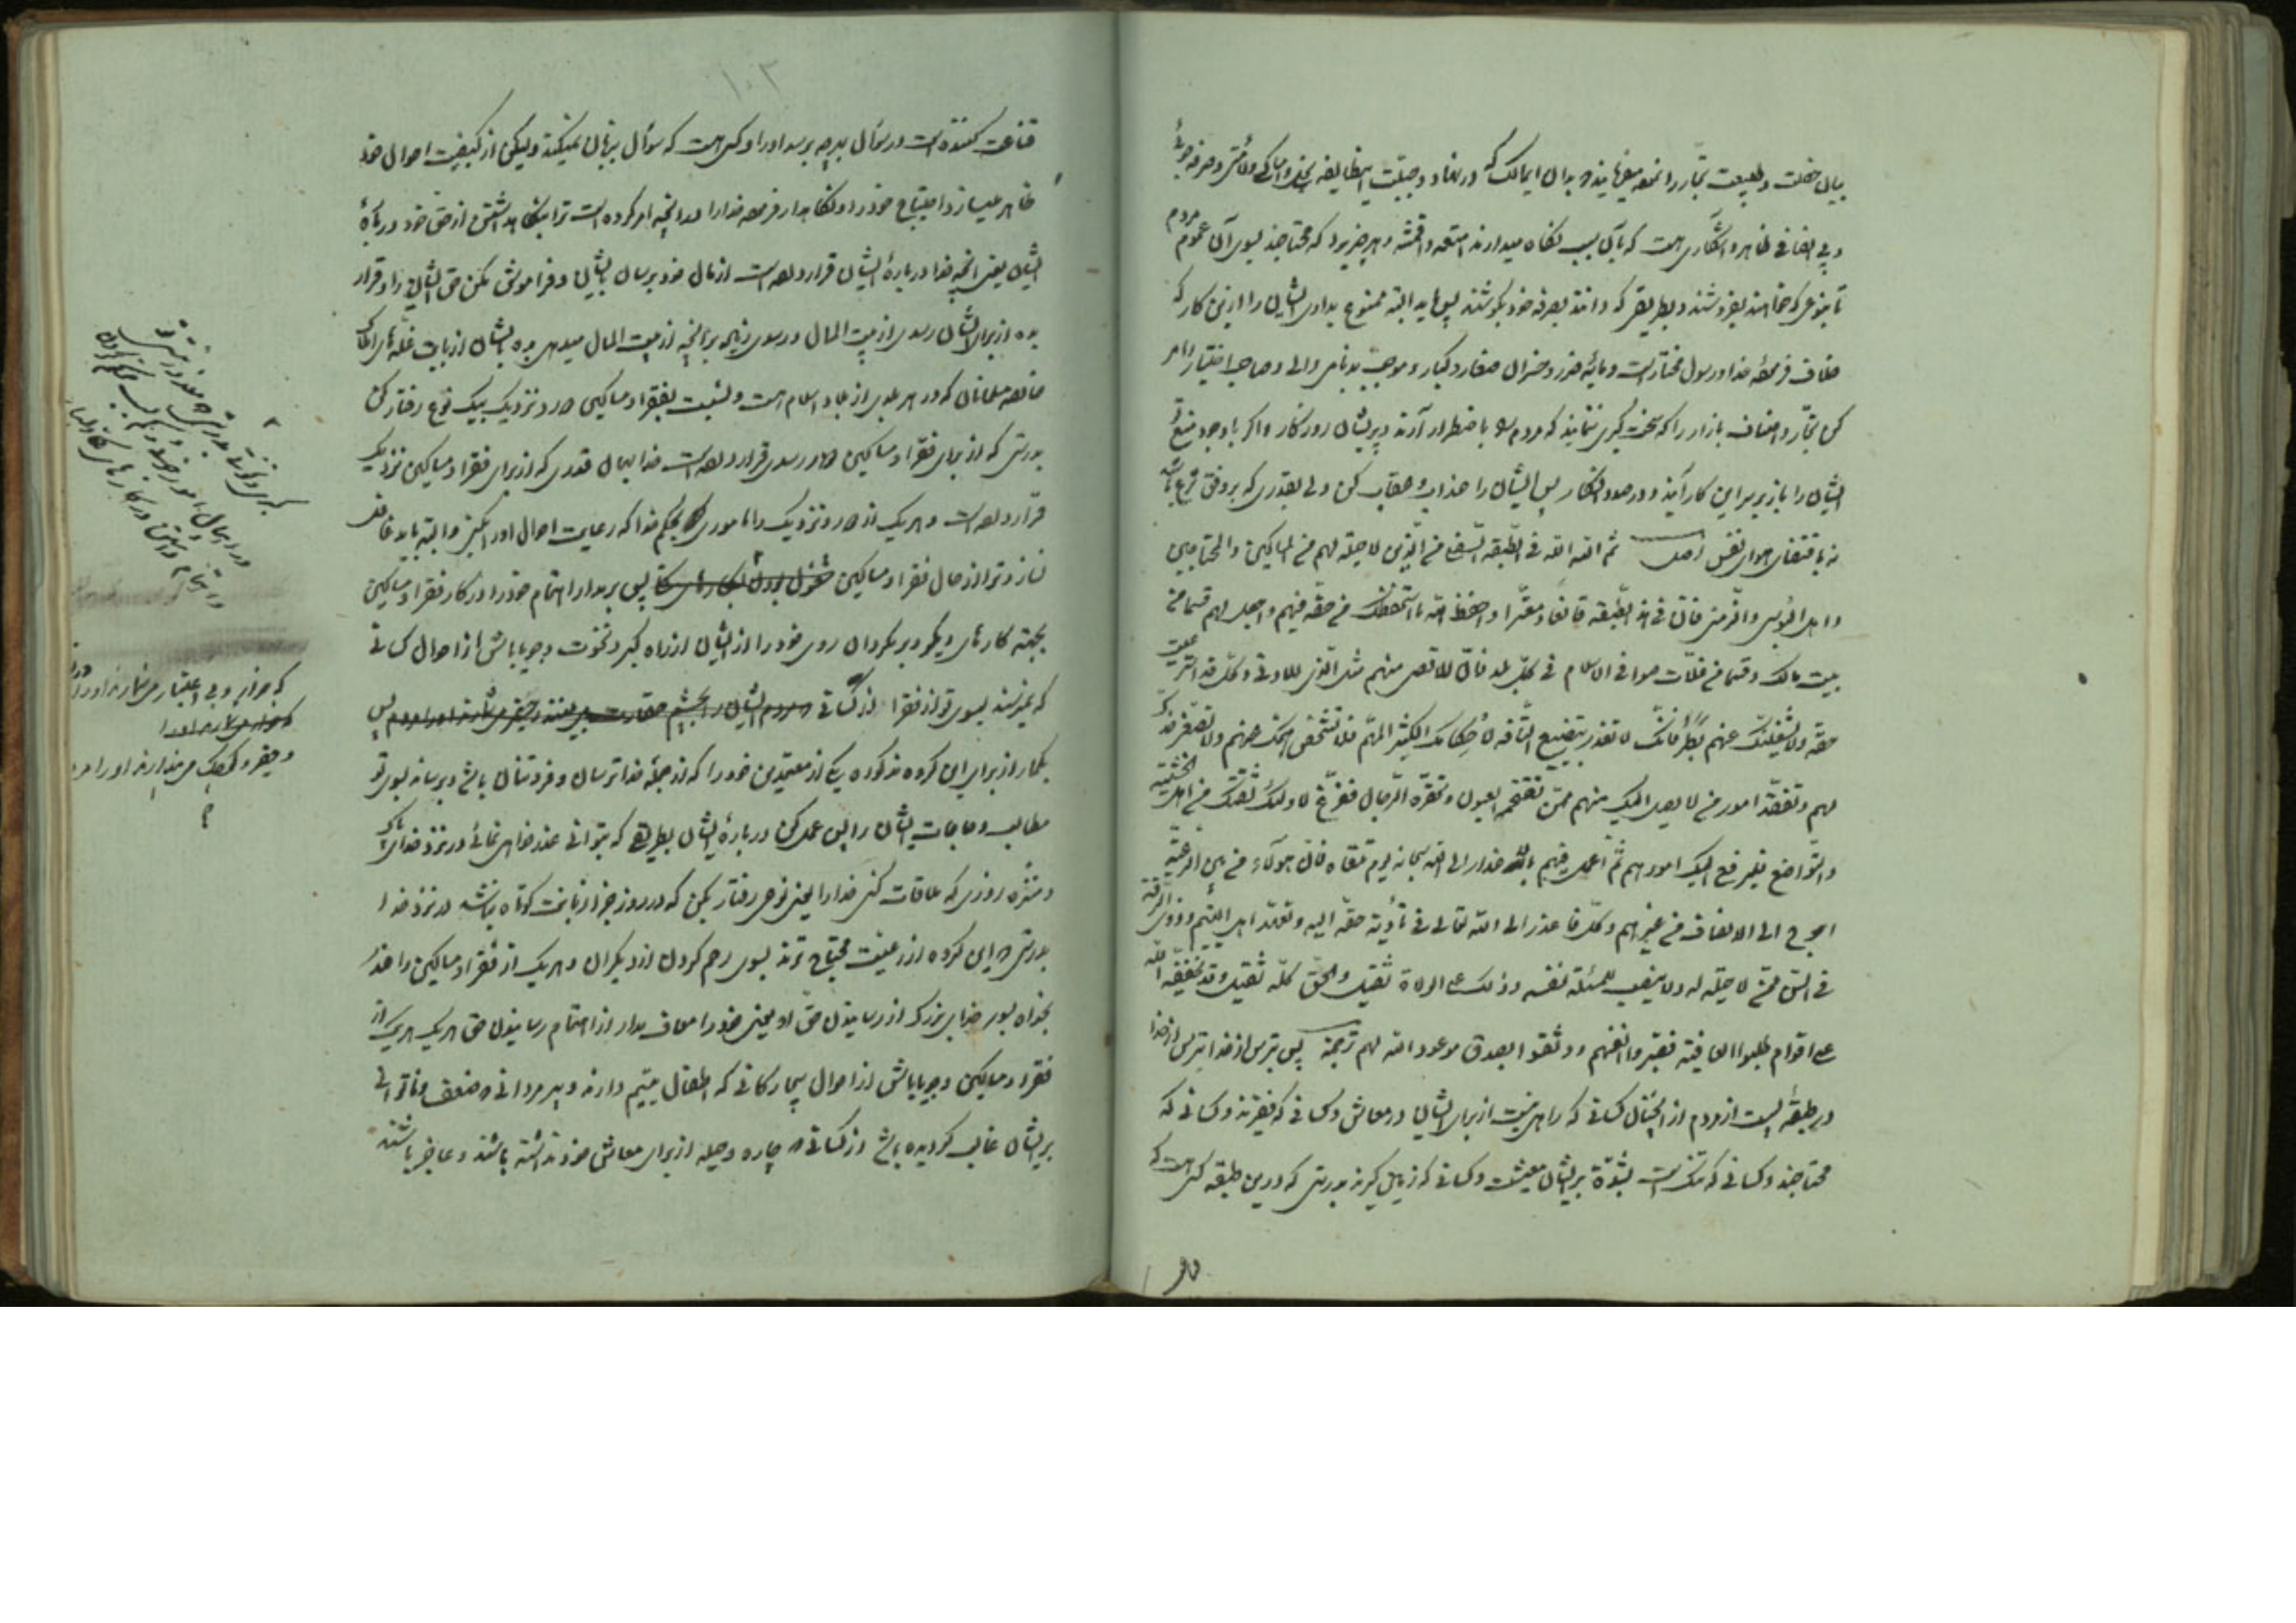 بیان خصلت و طبیعت تجار را نموده میفرمایند بدان ایمالک که در نهاد و جبلت اینطایفه
و بی انصافی ظاهر و آشکاری هست که بآن سبب نگاه میدارند امتعه و اقمشه و هر چیزیرا که محتاجند بسوی آن عموم مردم
تا بنوعی که خواهند بفروشند و بطریقی که دانند بصرفه خود بکوشند پس باید البته ممنوع بداری ایشان را ازین کار که
خلاف فرموده خدا و رسول مختار است و مایه ضرر و خسران صغار و کبار و موجب بدنامی والی و صاحب اختیار
کن تجار و اصناف بازار را که سخت گیری ننمایند که مردم را باضطرار آرند و پریشان روزگار و اگر با وجود منع تو
ایشان را باز بر سر این کار آیند و در صدد انکار پس ایشان را عذاب و عقاب کن ولی بقدری که بر وفق شرع باشد
نه باقتضای هوای نفس اصل ثم الله الله فی الطبقه السفلی من الذین لا حیلة لهم من المساکین والمحتاجین
و اهل البؤس والزمنی فان فی هذه الطبقة قانعا و معترا و احفظ الله ما استحفظک من حقه فیهم واجعل لهم قسما من
بیت مالک و قسما من غلات صوافی الاسلام فی کل بلد فان للاقصی منهم مثل الذی للادنی و کل قد استرعیت
حقه ولا یشغلنک عنهم بطر فانک لا تعذر بتضییع التافه لاحکامک الکثیر المهم فلا تشخص همک عنهم ولا تصعر خدک
لهم و تفقد امور من لا یصل الیک منهم ممن تقتحمه العیون و تحقره الرجال ففرغ لاولئک ثقتک من اهل الخشیة
والتواضع فلیرفع الیک امورهم ثم اعمل فیهم بالاعذار الی الله سبحانه یوم تلقاه فان هؤلاء من بین الرعیة
احوج الی الانصاف من غیرهم و کل فاعذر الی الله تعالی فی تأدیة حقه الیه و تعهد اهل الیتم و ذوی الرقة
فی السن ممن لا حیلة له ولا ینصب للمسئلة نفسه و ذلک علی الولاة ثقیل والحق کله ثقیل و قد یخففه الله
علی اقوام طلبوا العافیة فصبروا انفسهم و وثقوا بصدق موعود الله لهم ترجمه پس بترس از خدا بترس از خدا
در طبقهٔ پست از مردم از آنچنان کسانی که راهی نیست از برای ایشان در معاش و کسانی که فقیرند و کسانی که
محتاجند و کسانی که تنگ است بشدة بر ایشان معیشت و کسانی که زمین گیرند بدرستی که درین طبقه کسی هست که
۱۰۳
قناعت کننده است در سؤال بهر چه برسد او را و کسی هست که سؤال بزبان نمیکند ولیکن از کیفیت احوال خود
ظاهر میسازد احتیاج خود را و نگاهدار فرموده خدا را در آنچه امر کرده است ترا بنگاهداشتن از حق خود در بارهٔ
ایشان یعنی آنچه خدا در بارهٔ ایشان قرار داده است از مال خود برسان بایشان و فراموش مکن حق ایشان را و قرار
بده از برای ایشان رسدی از بیت المال و رسدی زیاده بر آنچه از بیت المال میدهی بده بایشان از بابت غله های املاک
خالصه مسلمانان که در هر بلدی از بلاد اسلام هست و نسبت بفقرا و مساکین دور و نزدیک بیک نوع رفتار کن
بدرستی که از برای فقرا و مساکین دور رسدی قرار داده است خدا بهمان قدری که از برای فقرا و مساکین نزدیک
قرار داده است و هر یک از دور و نزدیک را مأموری بحکم خدا که رعایت احوال او را بکنی و البته باید غافل
نسازد ترا از حال فقرا و مساکین مشغول بودن بکارهای پس بر مدار اهتمام خود را از کار فقرا و مساکین
بجهة کارهای دیگر و بر مگردان روی خود را از ایشان از راه کبر و نخوت و جویا باش از احوال کسانی
که نمیرسند بسوی تو از فقرا از کسانی که مردم ایشان را بچشم حقارت می بینند و حقیر می شمارند او را مردم پس
بگمار از برای این گروه مذکوره یکی از معتمدین خود را که از جمله خدا ترسان و فروتنان باشد و برساند بسوی تو
مطالب و حاجات ایشان را پس عمل کن در بارهٔ ایشان بطریقی که بتوانی عذر خواهی نمائی در نزد خدای پاک
و منزه روزی که ملاقات کنی خدا را یعنی نوعی رفتار بکن که در روز جزا زبانت کوتاه نباشد در نزد خدا
بدرستی که این گروه از رعیت محتاج ترند بسوی رحم کردن از دیگران و هر یک از فقرا و مساکین را عذر
بخواه بسوی خدای بزرگ از رسانیدن حق او یعنی خود را معاف مدار از اهتمام رسانیدن حق هر یک هر یک از
فقرا و مساکین و جویا باش از احوال بیچارگانی که اطفال یتیم دارند و پیر مردانی که ضعف و ناتوانی
بر ایشان غالب گردیده باشد از کسانی که چاره و حیله از برای معاش خود نداشته باشند و عاجز باشند